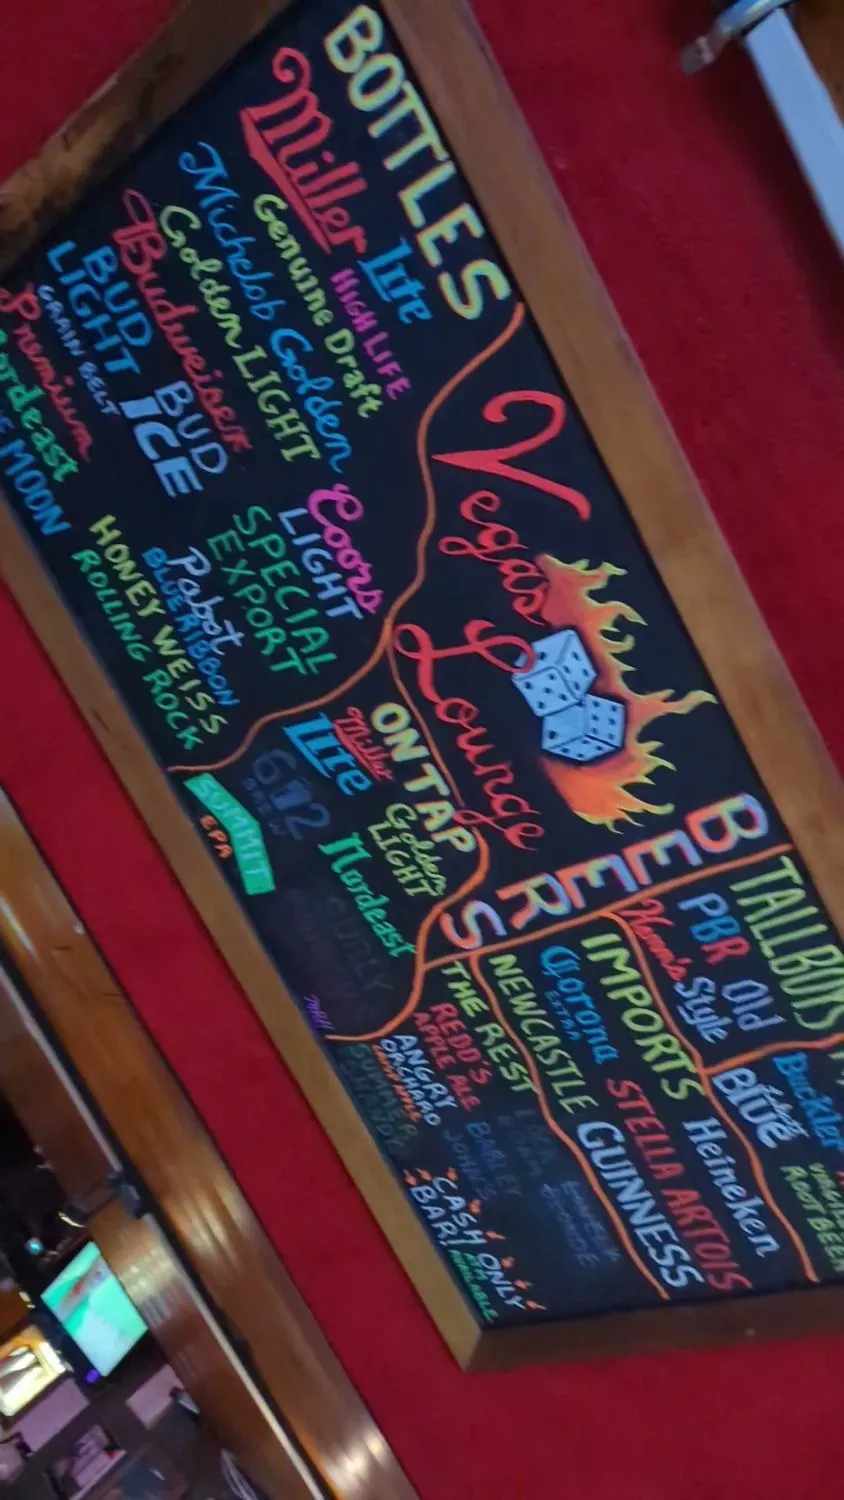 BOTTLES
Miller
Lite
HIGH LIFE
Genuine Draft
Michelob Golden
Golden LIGHT
Budweiser
BUD
LIGHT
BUD
ICE
GRAIN BELT
Premium
Nordeast
MOON
Coors
LIGHT
SPECIAL
EXPORT
Pabst
BLUE RIBBON
HONEY WEISS
ROLLING ROCK
Vegas
Lounge
ON TAP
Miller
Lite
Golden
LIGHT
Nordeast
612
BREW
SUMMIT
EPA
BEERS
TALLBOYS
PBR
Old
Style
Hamm's
IMPORTS
Corona
EXTRA
Heineken
STELLA ARTOIS
NEWCASTLE
GUINNESS
THE REST
REDD'S
APPLE ALE
ANGRY
ORCHARD
SUMMER
SHANDY
BARLEY
JOHN'S
Buckler
BLUE
ROOT BEER
CASH ONLY
BAR!
ATM
AVAILABLE